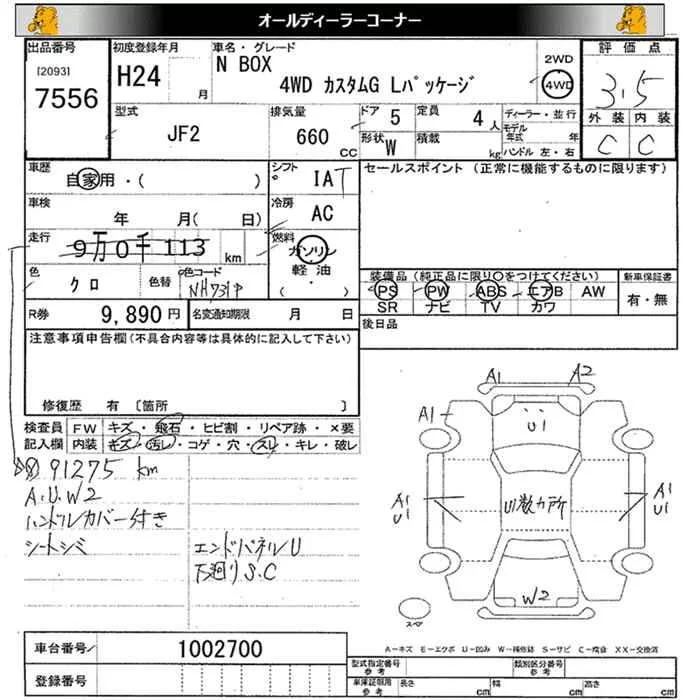 オールディーラーコーナー
出品番号
[2093]
7556
初度登録年月
H24
月
車名・グレード
N BOX
4WD カスタムG Lパッケージ
2WD
4WD
評価点
3.5
外装
内装
C
C
型式
JF2
排気量
660
CC
ドア
5
定員
4
人
形状
W
積載
kg
ディーラー・並行
モデル年式
年
ハンドル 左・右
車歴
自家用・( )
シフト
IAT
セールスポイント (正常に機能するものに限ります)
車検
年 月( 日)
冷房
AC
走行
9万0千113
km
燃料
ガソリン
軽油
( ・ )
色
クロ
色替
色コード
NH731P
装備品(純正品に限り○をつけてください)
PS PW ABS エアB AW
SR ナビ TV カワ
新車保証書
有・無
R券
9,890円
名変通知期限
月 日
後日品
注意事項申告欄(不具合内容等は具体的に記入して下さい)
修復歴 有 〔箇所 〕
検査員
記入欄
FW
キズ・飛石・ヒビ割・リペア跡・×要
内装
キズ・汚レ・コゲ・穴・スレ・キレ・破レ
91275 km
A.U.W2
ハンドルカバー付き
シートシミ
エンドパネルU
下廻りS.C
A1
A2
A1
U1
A1
U1
U1数カ所
A1
U1
W2
スペア
A-キズ E-エクボ U-凹み W-補修跡 S-サビ C-腐食 XX-交換済
車台番号
1002700
登録番号
型式指定番号
参考
類別区分番号
参考
車庫証明用
参考
長さ
cm
幅
cm
高さ
cm